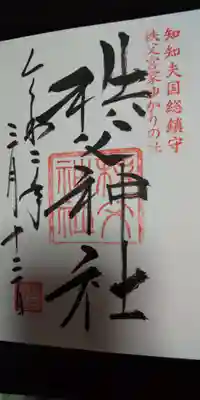 知知夫国総鎮守
秩父宮家ゆかりの社
秩父神社
令和二年
三月十三日